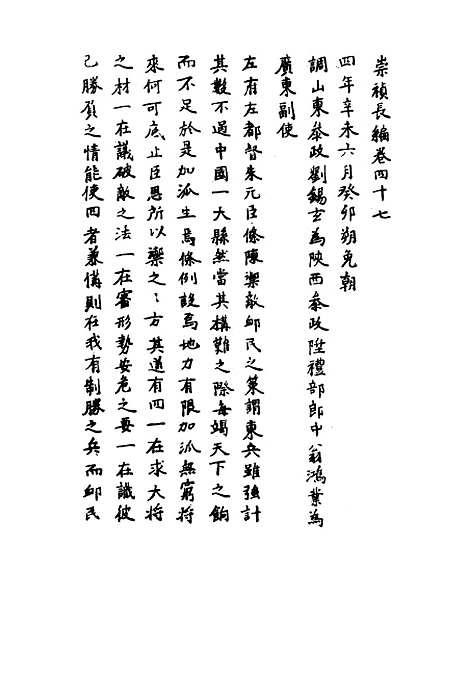 崇禎長編卷四十七
四年辛未六月癸卯朔免朝
調山東叅政劉錫玄為陝西叅政陞禮部郎中翁鴻業為
廣東副使
左府左都督朱元臣條陳禦敵卹民之策謂東兵雖強計
其數不過中國一大縣然當其構難之際每竭天下之餉
而不足於是加派生焉條例設焉地力有限加派無窮將
來何可底止臣思所以禦之之方其道有四一在求大將
之材一在議破敵之法一在審形勢安危之要一在識彼
己勝負之情能使四者兼備則在我有制勝之兵而卹民